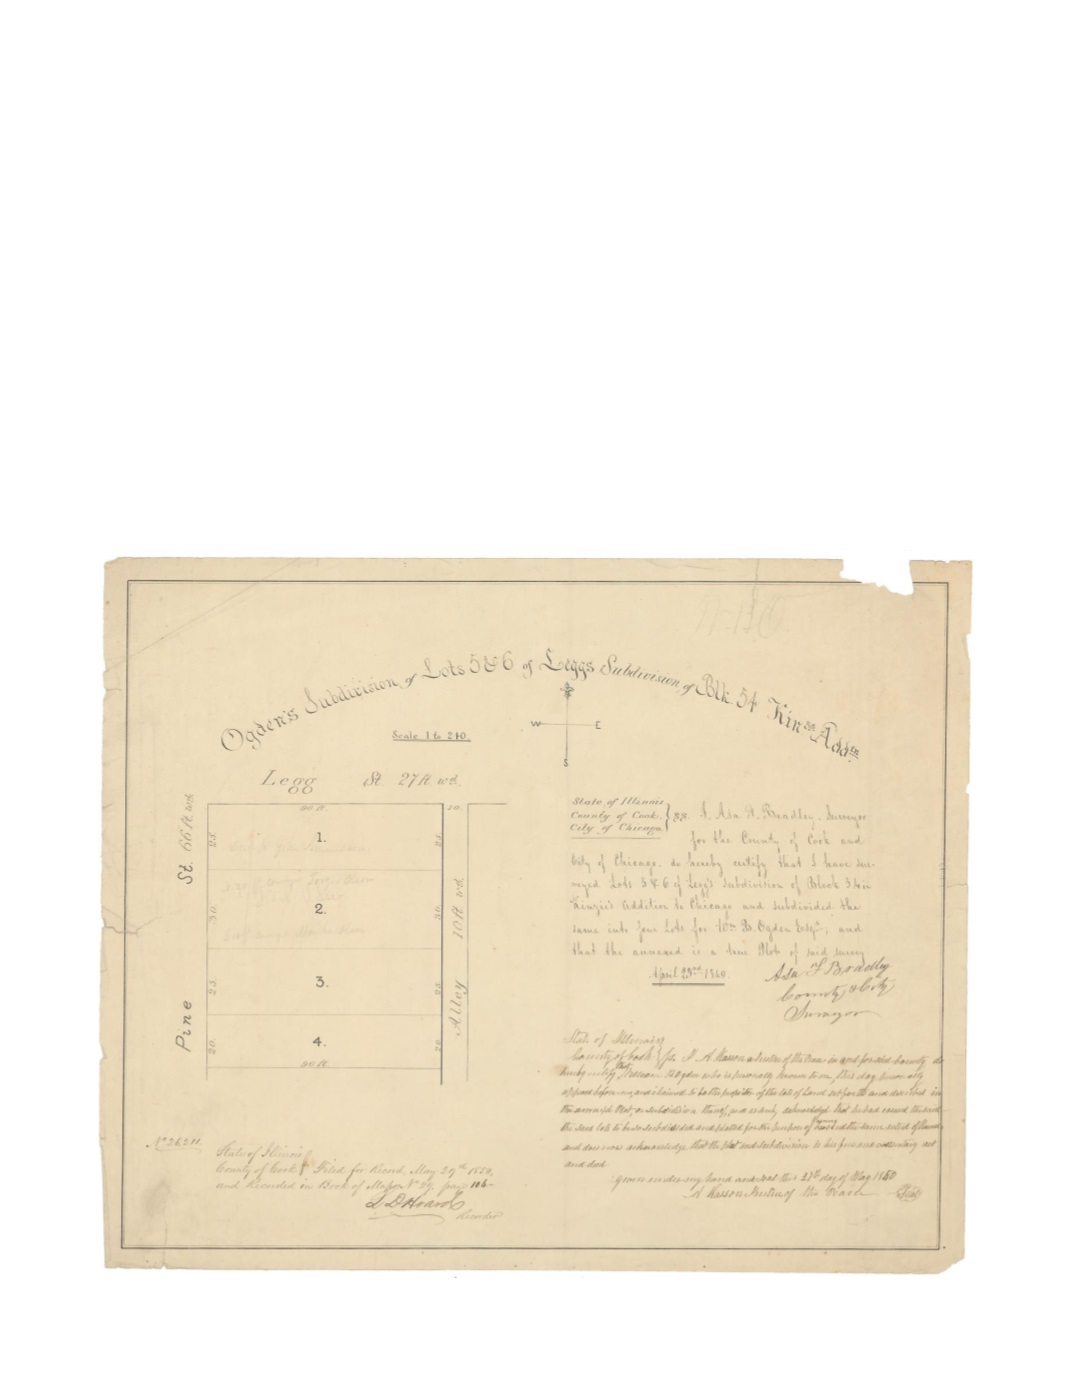 Ogden's Subdivision of Lots 5 & 6 of Leggs Subdivision of Blk. 54 Kinzs Addn.
Scale 1 to 240.
W E
S
Legg St. 27 ft. wd.
Pine St. 66 ft wd.
Alley 10 ft wd.
10.
25. 1. 25.
30. 2. 30.
25. 3. 25.
20. 4. 20.
State of Illinois
County of Cook. } ss. I, Asa F. Bradley, Surveyor
City of Chicago
for the County of Cook and
City of Chicago, do hereby certify that I have sur-
veyed Lots 5 & 6 of Legg's Subdivision of Block 54 in
Kinzie's Addition to Chicago and subdivided the
same into four Lots for Wm B. Ogden Esqr, and
that the annexed is a true Plot of said survey
April 23rd 1850.
Asa F Bradley
County & City
Surveyor
State of Illinois
County of Cook } ss
hereby certify that William B Ogden who is personally known to me, this day personally
appeared before me, and claimed to be the proprietor of the lots of Land set forth and described in
the annexed Plat, or subdivision thereof, and
the said lots to be so subdivided and platted for the purpose of
and does now acknowledge that the plat and subdivision is his free and voluntary act
and deed
given under my hand and seal this 27th day of May 1850
of the Peace Seal
No 26211.
State of Illinois
County of Cook } Filed for Record May 29th 1850,
and Recorded in Book of Maps No 29, page 106-
L D Hoard
Recorder